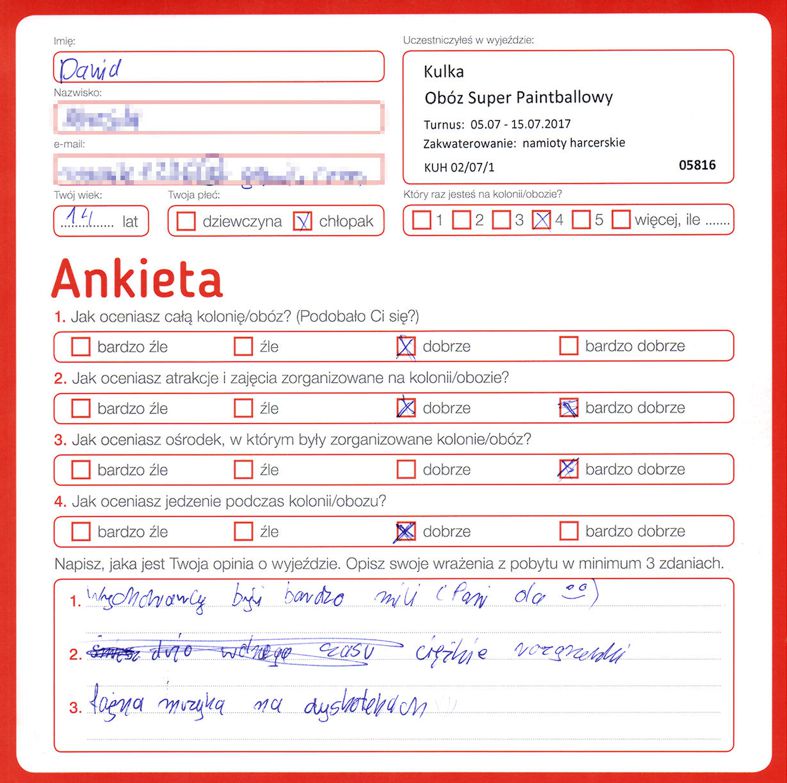 Imię:
Dawid
Nazwisko:
e-mail:
Twój wiek:
14 lat
Twoja płeć:
dziewczyna chłopak
Uczestniczyłeś w wyjeździe:
Kulka
Obóz Super Paintballowy
Turnus: 05.07 - 15.07.2017
Zakwaterowanie: namioty harcerskie
KUH 02/07/1 05816
Który raz jesteś na kolonii/obozie?
1 2 3 4 5 więcej, ile .......
Ankieta
1. Jak oceniasz całą kolonię/obóz? (Podobało Ci się?)
bardzo źle źle dobrze bardzo dobrze
2. Jak oceniasz atrakcje i zajęcia zorganizowane na kolonii/obozie?
bardzo źle źle dobrze bardzo dobrze
3. Jak oceniasz ośrodek, w którym były zorganizowane kolonie/obóz?
bardzo źle źle dobrze bardzo dobrze
4. Jak oceniasz jedzenie podczas kolonii/obozu?
bardzo źle źle dobrze bardzo dobrze
Napisz, jaka jest Twoja opinia o wyjeździe. Opisz swoje wrażenia z pobytu w minimum 3 zdaniach.
1. wychowawcy byli bardzo mili (Pani
2. dużo wolnego czasu ciężkie
3. fajna muzyka na dyskotekach